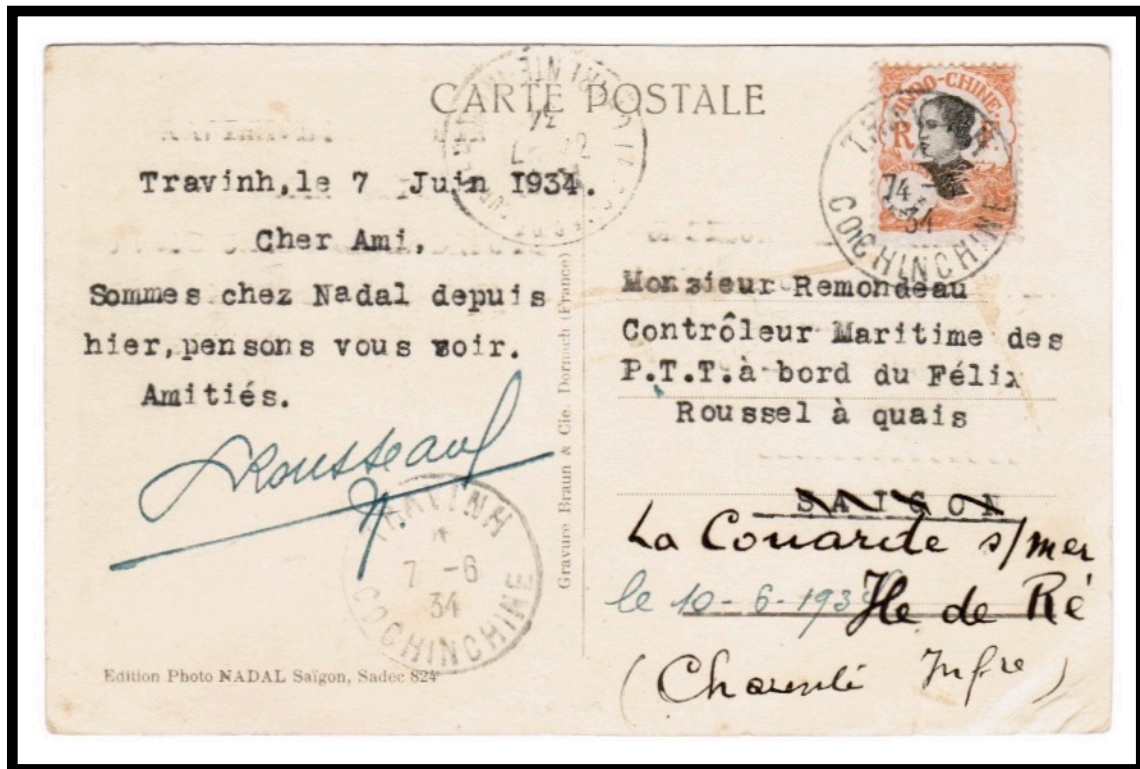 CARTE POSTALE
Travinh, le 7 Juin 1934.
Cher Ami,
Sommes chez Nadal depuis
hier, pensons vous voir.
Amitiés.
Rousseau
TRAVINH
7 -6
34
COCHINCHINE
Edition Photo NADAL Saïgon, Sadec 824
Gravure Braun & Cie, Dornach (France)
INDO-CHINE
R F
34
COCHINCHINE
Monsieur Remondeau
Contrôleur Maritime des
P.T.T. à bord du Félix
Roussel à quais
SAIGON
La Couarde s/mer
le 10-6-193
Ile de Ré
(Charente Infre)